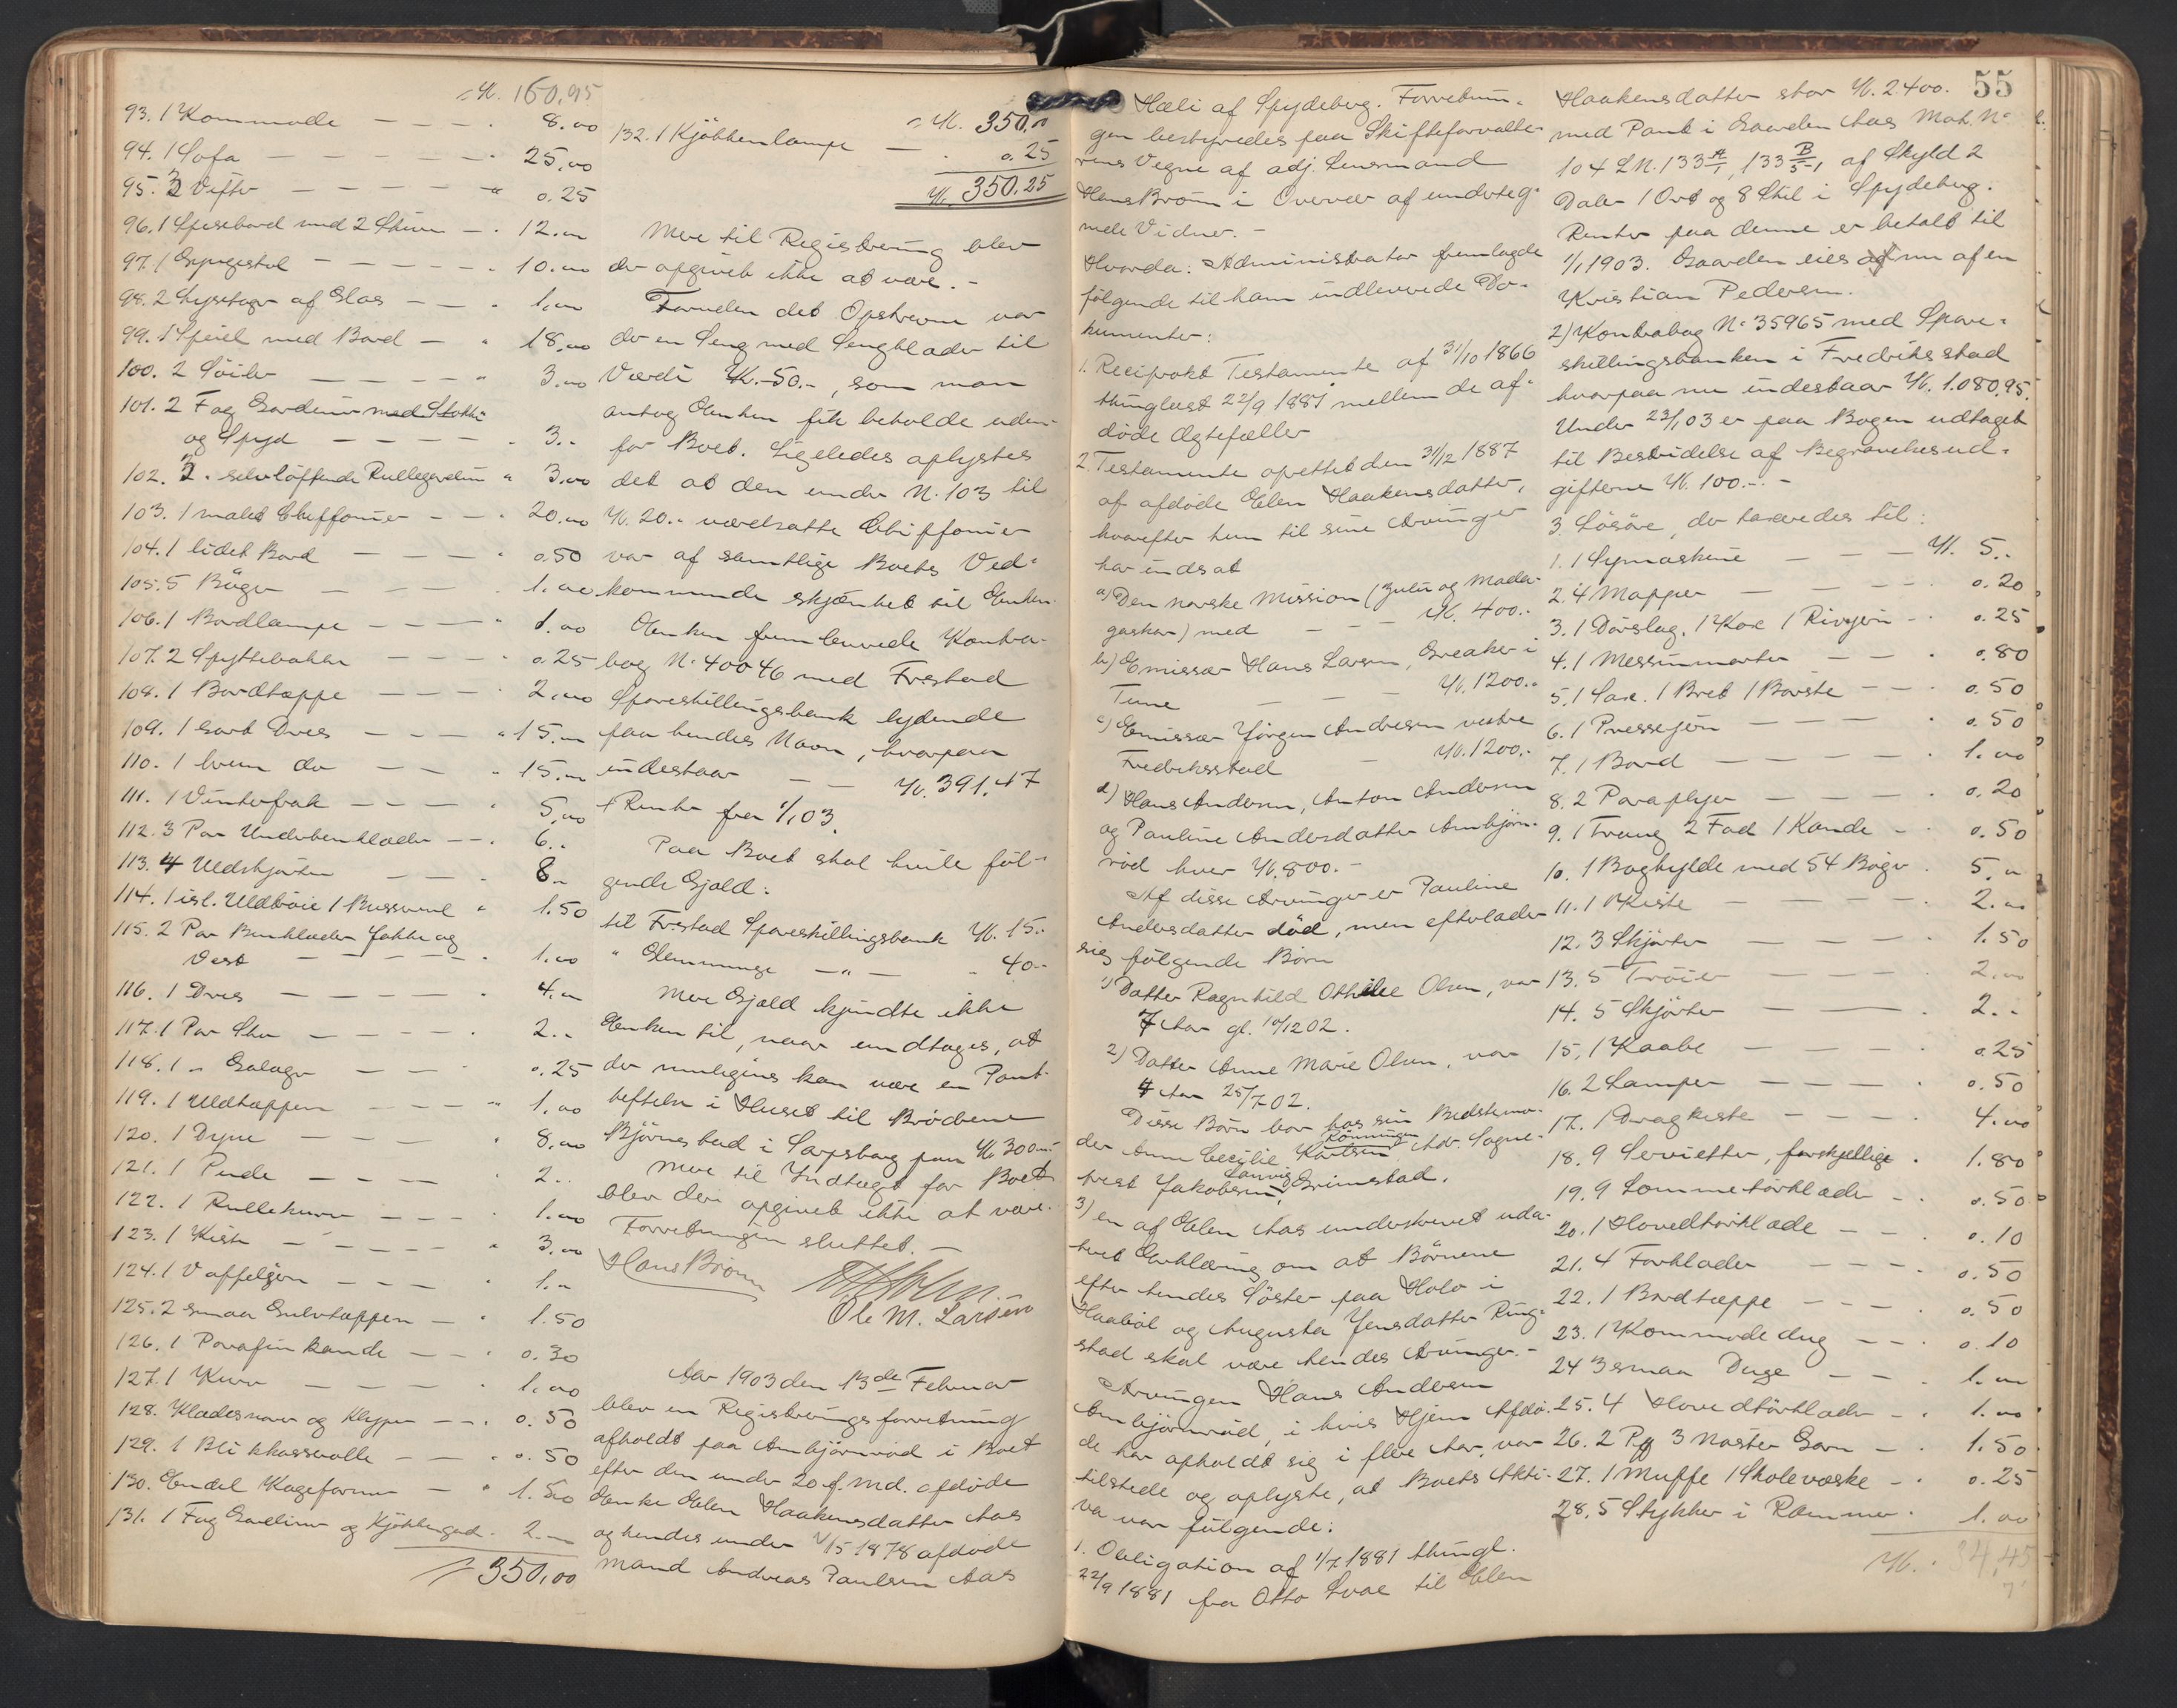 Kr. 160,95
93. 1 Kommode — — — 8.00
94. 1 Sofa — — — 25,00
95. 3 Vifter — — — " 0.25
96. 1 Spisebord med 2 Stuer — . 12.00
97. 1 Gyngestol — — — 10.00
98. 2 Lysetager af Glas — — . 1,00
99. 1 Speil med Bord — " 18,00
100. 2 Söiler — — — " 3.00
101. 2 Fag Gardiner med Stokke
og Spyd — — — . 3..
102. 3 . selvløftende Rullegardin " 3,00
103. 1 malet Chiffonier — — . 20.00
104. 1 lidet Bord — — — " 0.50
105. 5 Bøger — — — . 1.00
106. 1 Bordlampe — — — " 1.00
107. 2 Spyttebakker — — — . 0.25
108. 1 Bordtæppe — — — . 2,00
109. 1 sort Dres — — — " 15.00
110. 1 brun do — — " 15.00
111. 1 Vinterfrak — — — " 5,00
112. 3 Par Underbenklæder — — . 6..
113. 4 Uldskjorter — — . 8..
114. 1 isl. Uldtröie 1 Busserul " 1.50
115. 2 Par Benklæder Jakke og
Vest — — — — . 1.00
116. 1 Dres — — — — . 4.00
117. 1 Par Sko — — — . 2..
118. 1 " Galoger — — . 0.25
119. 1 Uldtæppen — — — " 1.00
120. 1 Dyne — — — " 8.00
121. 1 Pude — — — . 2..
122. 1 Rullekurv — — — . 1.00
123. 1 Kiste — — — " 3.00
124. 1 Vaffeljern — — — " 1..
125. 2 smaa Gulvtæppen — " 1.50
126. 1 Parafinkande — — " 0.30
127. 1 Kurv — — — . 1.00
128. Klædesnorer og Klyper — — . 0.50
129. 1 Blikkasserolle — — . 0.50
130. Endel Kageformer — " 1.50
131. 1 Fag Gardiner og Kjökkengard. . 2.—
350,00
Kr. 350,00
132. 1 Kjökkenlampe — . 0.25
Kr. 350.25
Mere til Registrering blev
der opgivet ikke at være. -
Foruden det Opskrevne var
der en Seng med Sengklæder til
Værdi Kr. 50.-, som man
antog Enken fik beholde uden-
for Boet. Ligeledes oplystes
det at den under N. 103 til
Kr. 20.. værdsatte Chiffonier
var af samtlige Boets Ved-
kommende skjænket til Enken.
Enken fremleverede Kontra-
bog N. 40046 med Fr.stad
Spareskillingsbank lydende
paa hendes Navn, hvorpaa
indestaar — Kr. 391.47
+ Renter fra 1/1 03.
Paa Boet skal hvile føl-
gende Gjæld:
til Fr.stad Spareskillingsbank Kr. 15..
" Glemminge — " — " 40..
Mere Gjæld kjendte ikke
Enken til, naar undtages, at
der muligens kan være en Pant-
heftelse i Huset til Brødrene
Björnestad i Sarpsborg paa Kr. 300.00
Mere til Indtægt for Boet
blev der opgivet ikke at være.
Forretningen sluttet. -
Hans Brønn
Ole M. Larsen
Aar 1903 den 13de Februar
blev en Registreringsforretning
afholdt paa Ambjørnrød i Boet
efter den under 20 f. Md. afdøde
Enke Elen Haakensdatter Aas
og hendes under 21/5 1878 afdøde
Mand Andreas Paulsen Aas
55
Hæli af Spydeberg. Forretnin-
gen bestyredes paa Skifteforvalte-
rens Vegne af adj. Lensmand
Hans Brønn i Overvær af underteg-
nede Vidner. -
Hvorda: Administrator fremlagde
følgende til ham indleverede Do-
kumenter:
1. Reciprokt Testamente af 31/10 1866
thinglæst 22/9 1881 mellem de af-
døde Ægtefæller
2. Testamente oprettet den 31/12 1887
af afdøde Elen Haakensdatter,
hvorefter hun til sine Arvinger
har indsat
a) Den norske Mission (Zulu og Mada-
gaskar) med — — — Kr. 400..
b) Emissær Hans Larsen, Greaker i
Tune — — Kr. 1200..
c) Emissær Jørgen Andresen vestre
Fredriksstad — Kr. 1200..
d) Hans Andersen, Anton Andersen
og Pauline Andersdatter Ambjørn-
rød hver Kr. 800.-
Af disse Arvinger er Pauline
Andersdatter død, men efterlader
sig følgende Børn
1) Datter Ragnhild Othilie Olsen, var
7 Aar gl. 10/12 02.
2) Datter Anne Marie Olsen, var
4 Aar 25/7 02.
Disse Børn bor hos sin Bedstemo-
der Anne Cecilie Karlsen Rönningen Adr. Sogne-
prest Jakobsen, Landvig Grimestad.
3) en af Elen Aas underskrevet uda-
teret Erklæring om at Børnene
efter hendes Söster paa Holo i
Haaböl og Augusta Jensdatter Ring-
stad skal være hendes Arvinger. -
Arvingen Hans Andersen
Ambjørnrød, i hvis Hjem Afdø-
de har opholdt sig i flere Aar, var
tilstede og oplyste, at Boets Akti-
va var følgende:
1. Obligation af 1/7 1881 thingl.
22/9 1881 fra Otto Svae til Elen
Haakensdatter stor Kr. 2400.
med Pant i Gaarden Aas Mat. N°
104 L.N. 133 A/1, 133 B/5-1 af Skyld 2
Daler 1 Ort og 8 Skil i Spydeberg.
Renter paa denne er betalt til
1/1 1903. Gaarden eies af nu af en
Kristian Pedersen.
2) Kontrabog N° 35965 med Spare-
skillingsbanken i Fredriksstad
hvorpaa nu indestaar Kr. 1.080,95.
Under 23/1 03 er paa Bogen udtaget
til Bestridelse af Begravelsesud-
gifterne Kr. 100.-. -
3. Løsøre, der taxeredes til:
1. 1 Symaskine — — — Kr. 5..
2. 4 Mapper — — — — 0.20
3. 1 Dørslag, 1 Kar 1 Rivjern — . 0.25
4. 1 Messinmorter — — . 0.80
5. 1 Sax. 1 Bret 1 Børste — — . 0.50
6. 1 Pressejern — — — . 0.50
7. 1 Bord — — — — . 1.00
8. 2 Paraplyer — — — . 0.20
9. 1 Traug 2 Fad 1 Kande — . 0.50
10. 1 Boghylde med 54 Bøger . 5.00
11. 1 Kiste — — — — . 2.00
12. 3 Skjørter — — — . 1.50
13. 5 Trøier — — — . 2.00
14. 5 Skjørter — — . 2..
15. 1 Kaabe — — — . 0.25
16. 2 Lamper — — — . 0.50
17. 1 Dragkiste — — — . 4.00
18. 9 Servietter, forskjellige . 1.80
19. 9 Lommetörklæder — . 0.50
20. 1 Hovedtörklæde — — . 0.10
21. 4 Forklæder — — — . 0.50
22. 1 Bordtæppe — — — . 0.50
23. 1 Kommodedug — — . 0.10
24 3 smaa Duge — — . 1.00
25. 4 Hovedtörklæder — . 1.00
26. 2 Pg 3 Nøster Garn — . 1.50
27. 1 Muffe 1 Skolevæske — . 0.25
28. 5 Stykker i Rammer . 1.00
Kr. 34,45